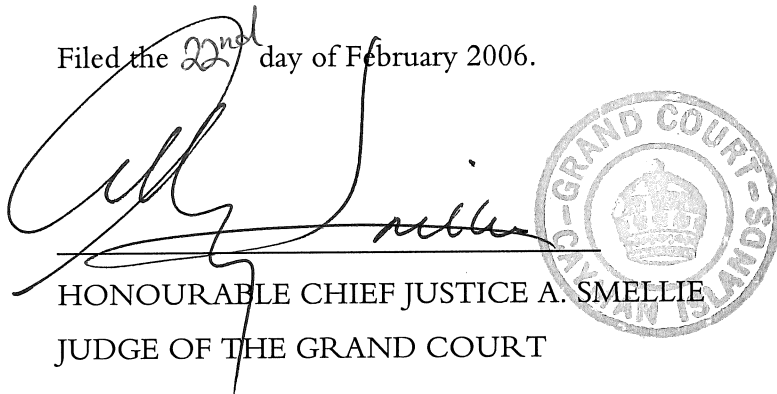 Filed the 22nd day of February 2006.
GRAND COURT
CAYMAN ISLANDS
HONOURABLE CHIEF JUSTICE A. SMELLIE
JUDGE OF THE GRAND COURT